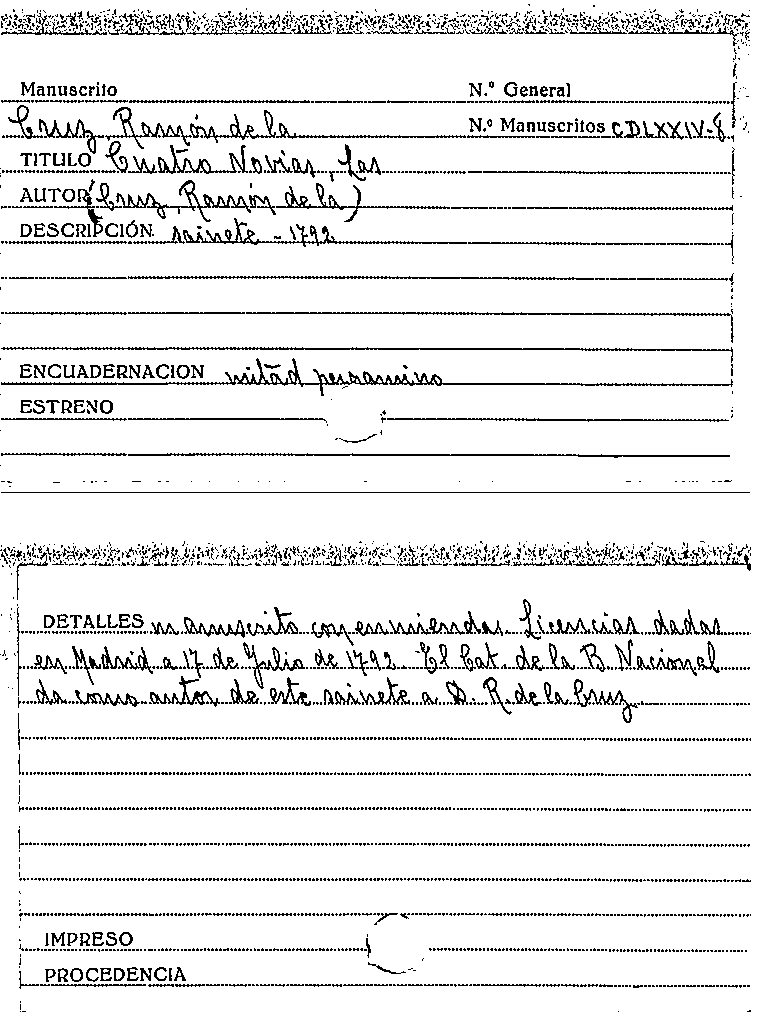 Manuscrito N.º General
Cruz, Ramón de la N.º Manuscritos CDLXXIV-8
TITULO Cuatro Novias, Las
AUTOR (Cruz, Ramón de la)
DESCRIPCIÓN sainete - 1792
ENCUADERNACION mitad pergamino
ESTRENO
DETALLES manuscrito con enmiendas Licencias dadas
en Madrid a 17 de Julio de 1792 El Cat. de la B. Nacional
da como autor de este sainete a D. R. de la Cruz
IMPRESO
PROCEDENCIA